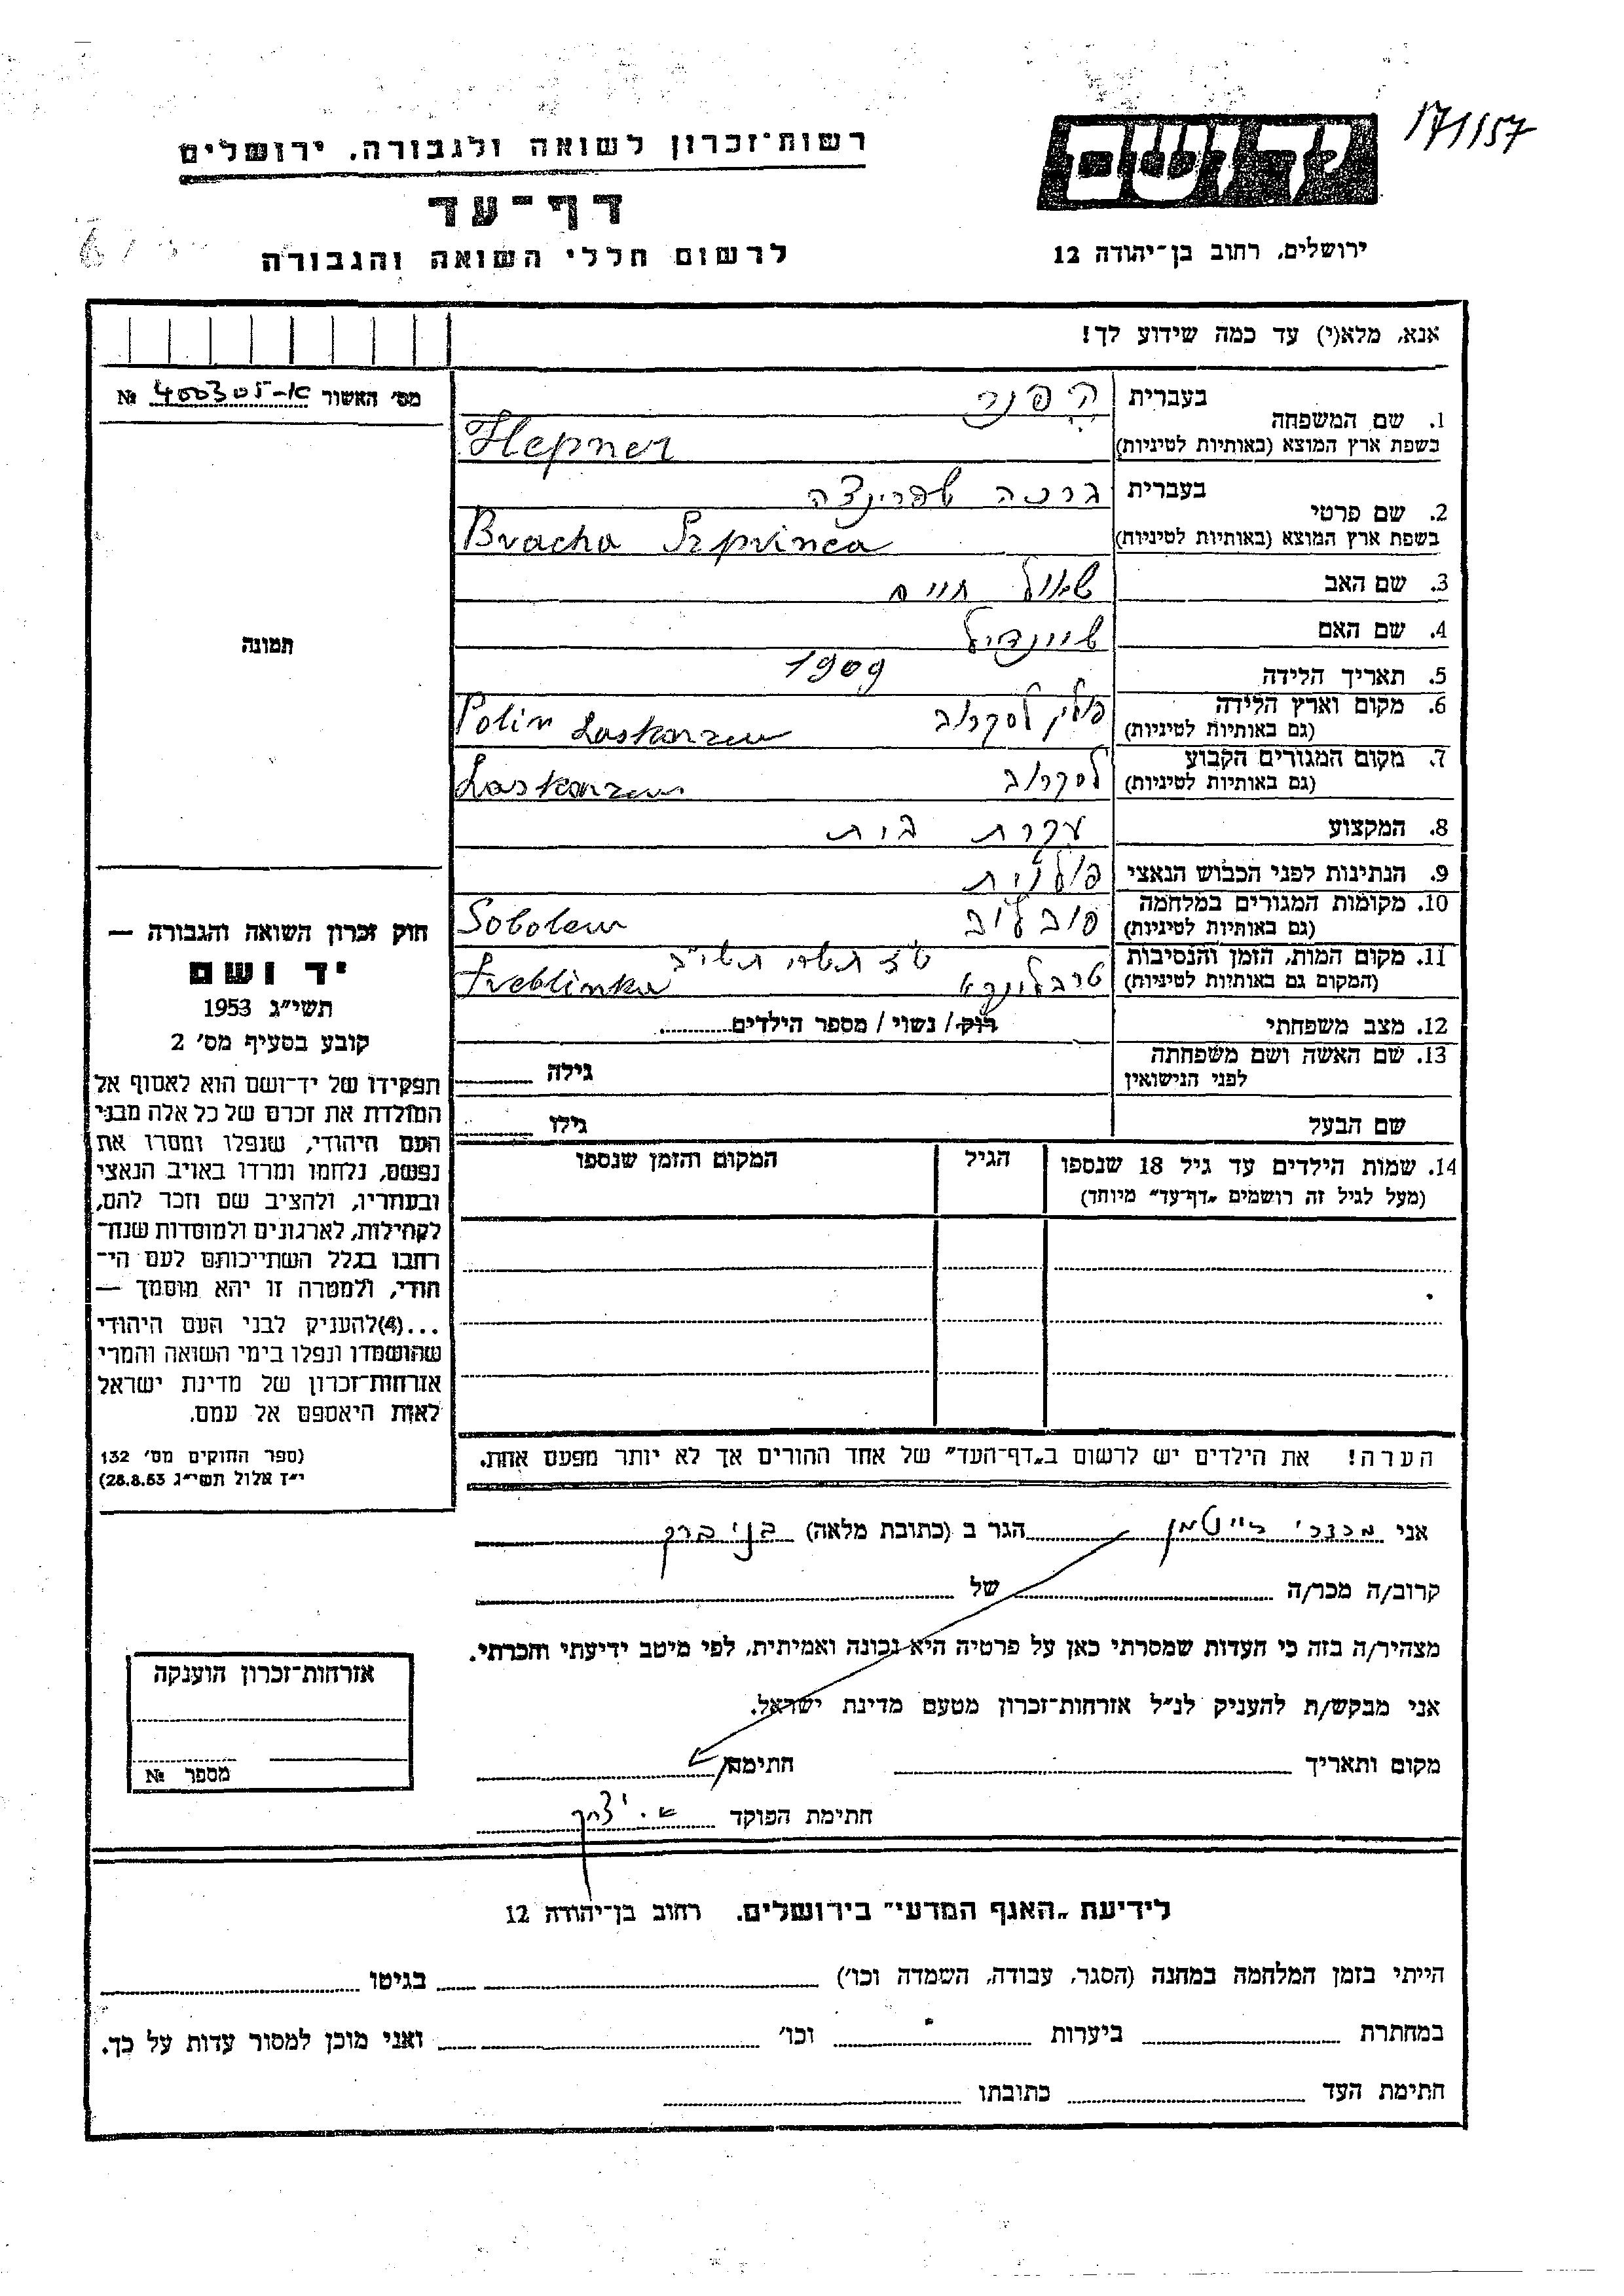 171/157
רשות־זכרון לשואה ולגבורה. ירושלים
יד ושם
דף־עד
ירושלים, רחוב בן־יהודה 12
לרשום חללי השואה והגבורה
אנא, מלא(י) עד כמה שידוע לך!
מס׳ האשור א-400305 №
תמונה
1. שם המשפחה בעברית הפנר
בשפת ארץ המוצא (באותיות לטיניות) Hepner
2. שם פרטי בעברית ברכה שפרינצה
בשפת ארץ המוצא (באותיות לטיניות) Bracha Szprinca
3. שם האב שאול חיים
4. שם האם שיינדיל
5. תאריך הלידה 1909
6. מקום וארץ הלידה (גם באותיות לטיניות) פולין לסקרוב Polin Laskarzew
7. מקום המגורים הקבוע (גם באותיות לטיניות) לסקרוב Laskarzew
8. המקצוע עקרת בית
9. הנתינות לפני הכבוש הנאצי פולנית
10. מקומות המגורים במלחמה (גם באותיות לטיניות) סובלוב Sobolew
11. מקום המות, הזמן והנסיבות ט״ז תשרי תשי״ב
(המקום גם באותיות לטיניות) טרבלינקא Treblinka
12. מצב משפחתי רוק / נשוי / מספר הילדים
13. שם האשה ושם משפחתה לפני הנישואין גילה
שם הבעל גילו
14. שמות הילדים עד גיל 18 שנספו הגיל המקום והזמן שנספו
(מעל לגיל זה רושמים „דף־עד״ מיוחד)
חוק זכרון השואה והגבורה —
יד ושם
תשי״ג 1953
קובע בסעיף מס׳ 2
תפקידו של יד־ושם הוא לאסוף אל
המולדת את זכרם של כל אלה מבני
העם היהודי, שנפלו ומסרו את
נפשם, נלחמו ומרדו באויב הנאצי
ובעוזריו, ולהציב שם וזכר להם,
לקהילות, לארגונים ולמוסדות שנח־
רבו בגלל השתייכותם לעם הי־
הודי, ולמטרה זו יהא מוסמך —
...(4)להעניק לבני העם היהודי
שהושמדו ונפלו בימי השואה והמרי
אזרחות־זכרון של מדינת ישראל
לאות היאספם אל עמם.
(ספר החוקים מס׳ 132
י״ז אלול תשי״ג 28.8.53)
הערה! את הילדים יש לרשום ב„דף־העד״ של אחד ההורים אך לא יותר מפעם אחת.
אני מרדכי רייטמן הגר ב (כתובת מלאה) בני ברק
קרוב/ה מכר/ה של
מצהיר/ה בזה כי העדות שמסרתי כאן על פרטיה היא נכונה ואמיתית, לפי מיטב ידיעתי והכרתי.
אני מבקש/ת להעניק לנ״ל אזרחות־זכרון מטעם מדינת ישראל.
מקום ותאריך חתימה
חתימת הפוקד א. יצחק
אזרחות־זכרון הוענקה
מספר №
לידיעת „האגף המדעי״ בירושלים. רחוב בן־יהודה 12
הייתי בזמן המלחמה במחנה (הסגר, עבודה, השמדה וכו׳) בגיטו
במחתרת ביערות וכו׳ ואני מוכן למסור עדות על כך.
חתימת העד כתובתו